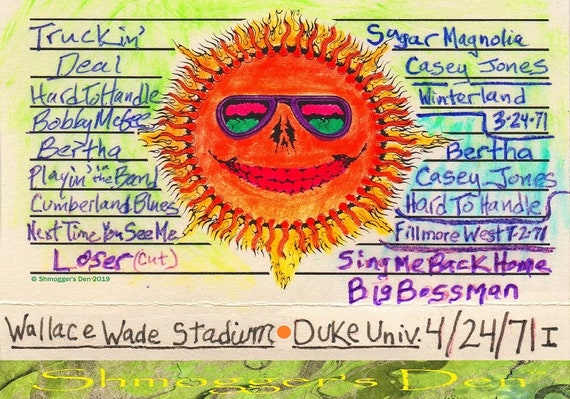 Truckin'
Deal
Hard To Handle
Bobby McGee
Bertha
Playin' in the Band
Cumberland Blues
Next Time You See Me
Loser (cut)
© Shmogger's Den 2019
Sugar Magnolia
Casey Jones
Winterland
3·24·71
Bertha
Casey Jones
Hard To Handle
Fillmore West 7·2·71
Sing Me Back Home
Big Bossman
Wallace Wade Stadium • Duke Univ. 4/24/71 I
Shmogger's Den